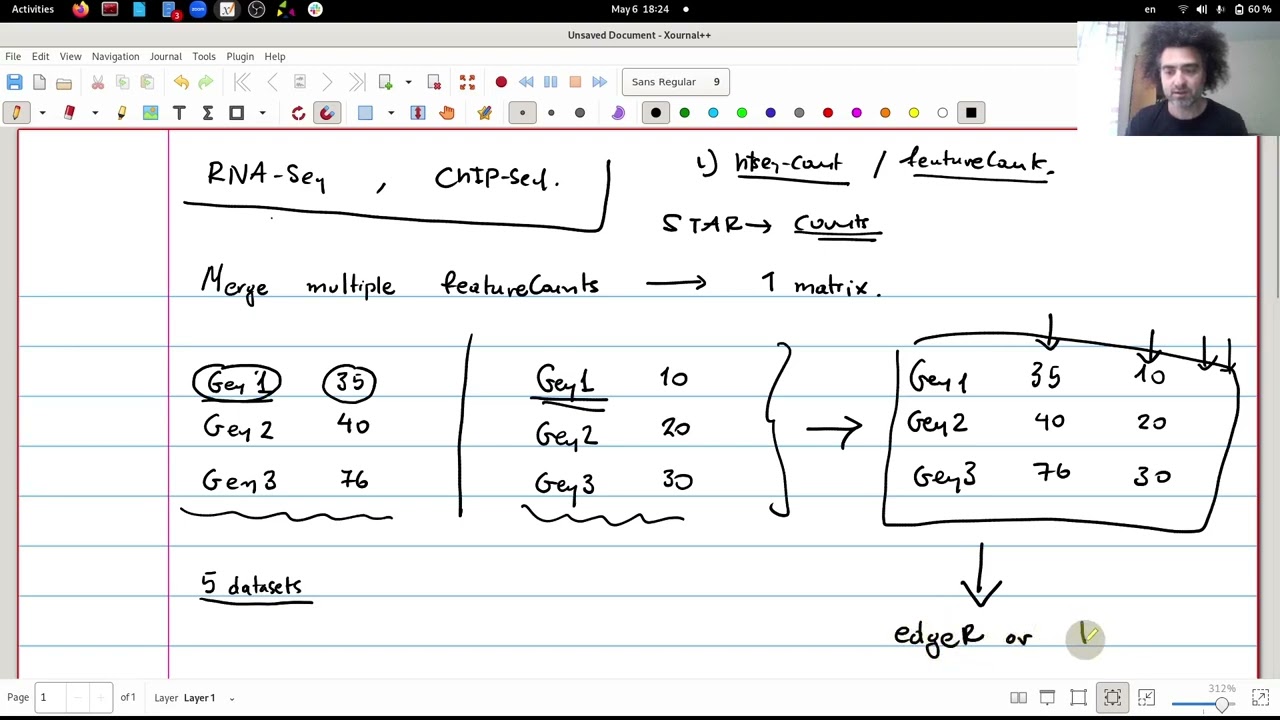 Activities
May 6 18:24
en
60 %
Unsaved Document - Xournal++
File Edit View Navigation Journal Tools Plugin Help
Sans Regular 9
RNA-Seq , ChIP-Seq.
1) htseq-count / featureCount.
STAR → Counts
Merge multiple featureCounts → 1 matrix.
Gen 1 35
Gen 2 40
Gen 3 76
Gen 1 10
Gen 2 20
Gen 3 30
Gen 1 35 10
Gen 2 40 20
Gen 3 76 30
5 datasets
edgeR or
Page 1 of 1 Layer Layer 1
312%